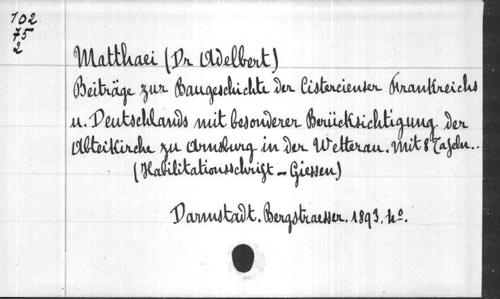 102
75
2
Matthaei (Dr Adelbert)
Beiträge zur Baugeschichte der Cistercienser Frankreichs
u. Deutschlands mit besonderer Berücksichtigung der
Abteikirche zu Arnsburg in der Wetterau. Mit 8 Tafeln..
(Habilitationsschrift - Giessen)
Darmstadt. Bergstraesser. 1893. 4o.